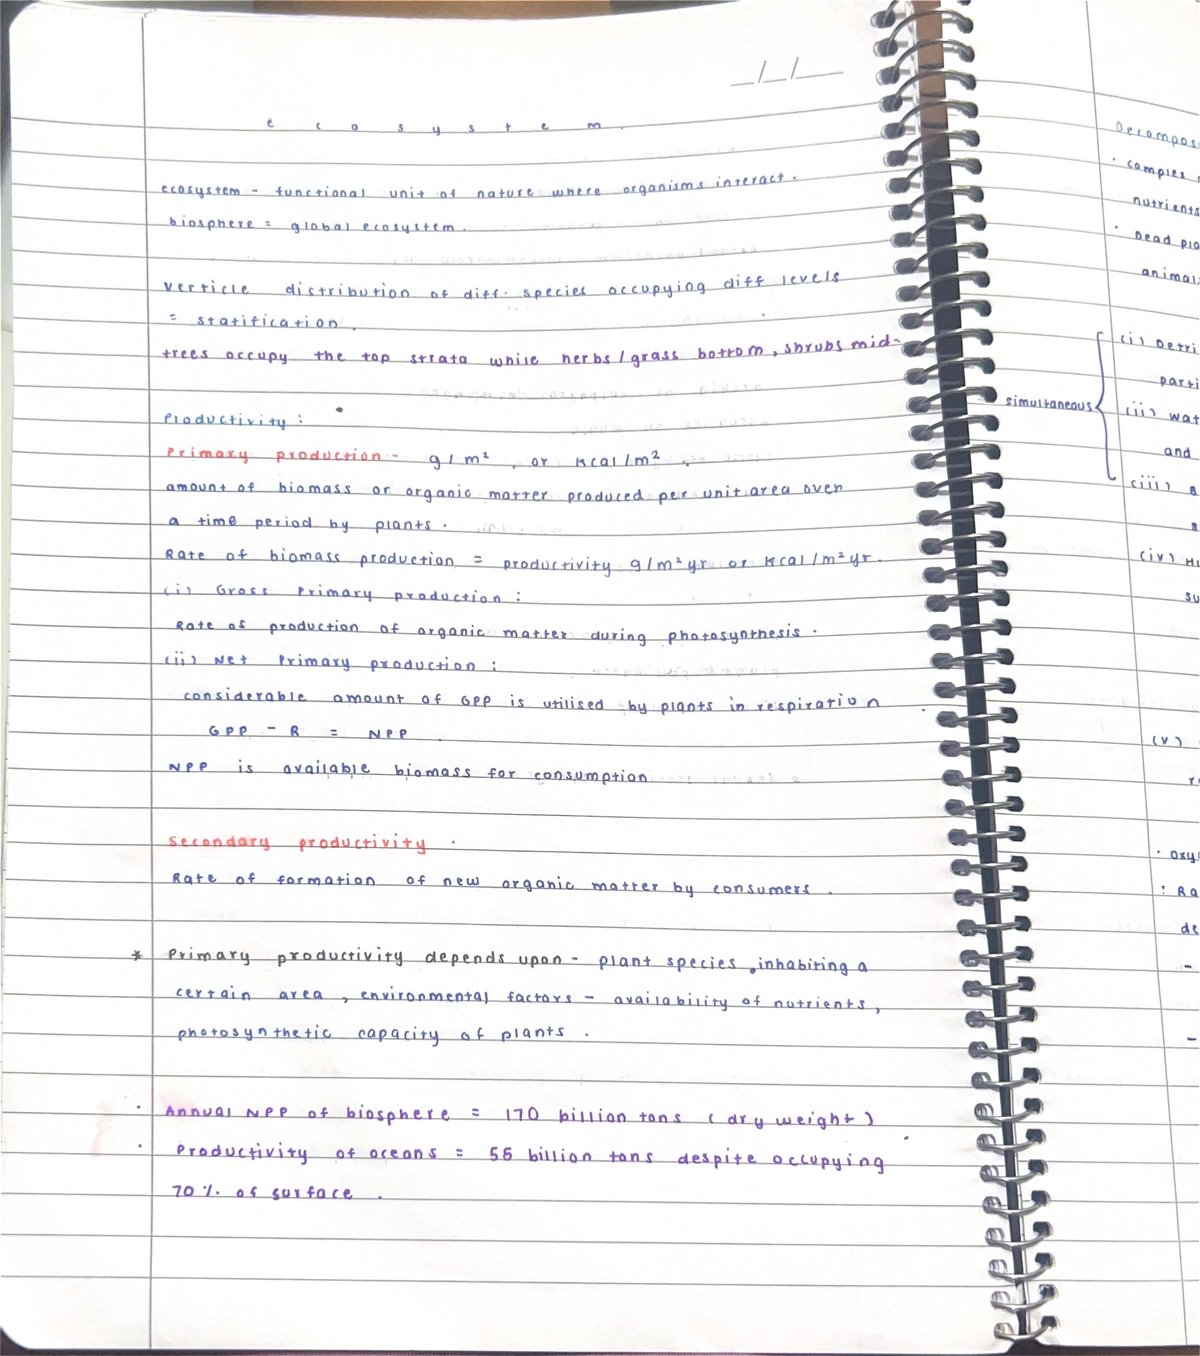 e c o s y s t e m .
ecosystem - functional unit of nature where organisms interact.
biosphere = global ecosystem.
verticle distribution of diff. species occupying diff levels
= statification.
trees occupy the top strata while herbs/grass bottom, shrubs mid-
Productivity :
Primary production - g/m², or Kcal/m².
amount of biomass or organic matter produced per unit area over
a time period by plants.
Rate of biomass production = productivity g/m² yr or Kcal/m² yr.
(i) Gross Primary production :
Rate of production of organic matter during photosynthesis.
(ii) Net Primary production :
considerable amount of GPP is utilised by plants in respiration.
GPP - R = NPP.
NPP is available biomass for consumption
Secondary productivity.
Rate of formation of new organic matter by consumers.
* Primary productivity depends upon - plant species, inhabiting a
certain area, environmental factors - availability of nutrients,
photosynthetic capacity of plants.
· Annual NPP of biosphere = 170 billion tons (dry weight)
· Productivity of oceans = 55 billion tons despite occupying
70% of surface.
Decompos
· complex
nutrients
· Dead pla
animal
simultaneous
(i) Detri
parti
(ii) wat
and
(iii)
(iv)
su
(v)
· oxy
: Ra
de
-
-